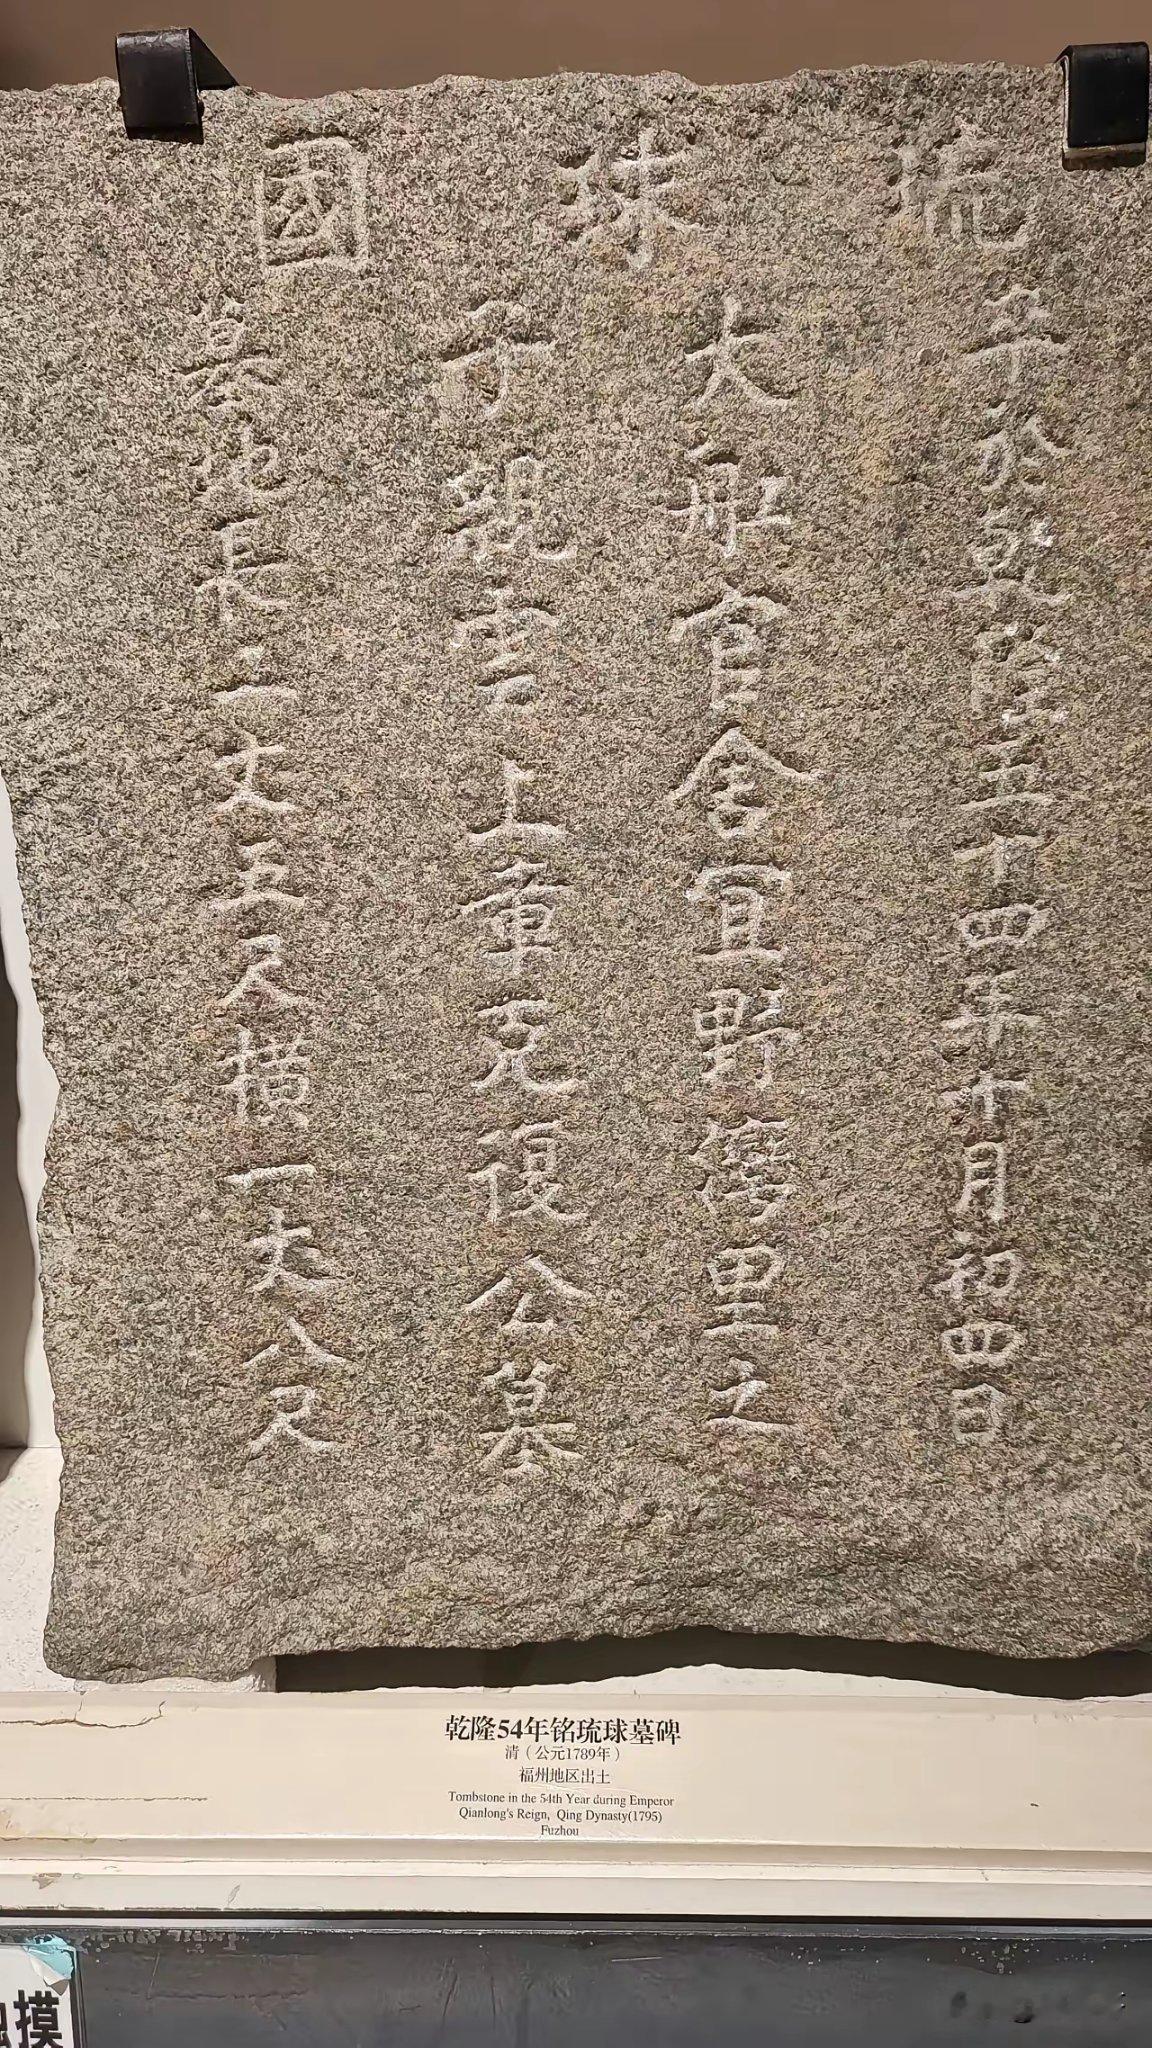 琉球國
卒於乾隆五十四年十月初四日
大船官舍宜野灣里之
子親雲上章克復公墓
墓地長二丈五尺橫一丈八尺
乾隆54年铭琉球墓碑
清（公元1789年）
福州地区出土
Tombstone in the 54th Year during Emperor
Qianlong's Reign, Qing Dynasty(1795)
Fuzhou
摸